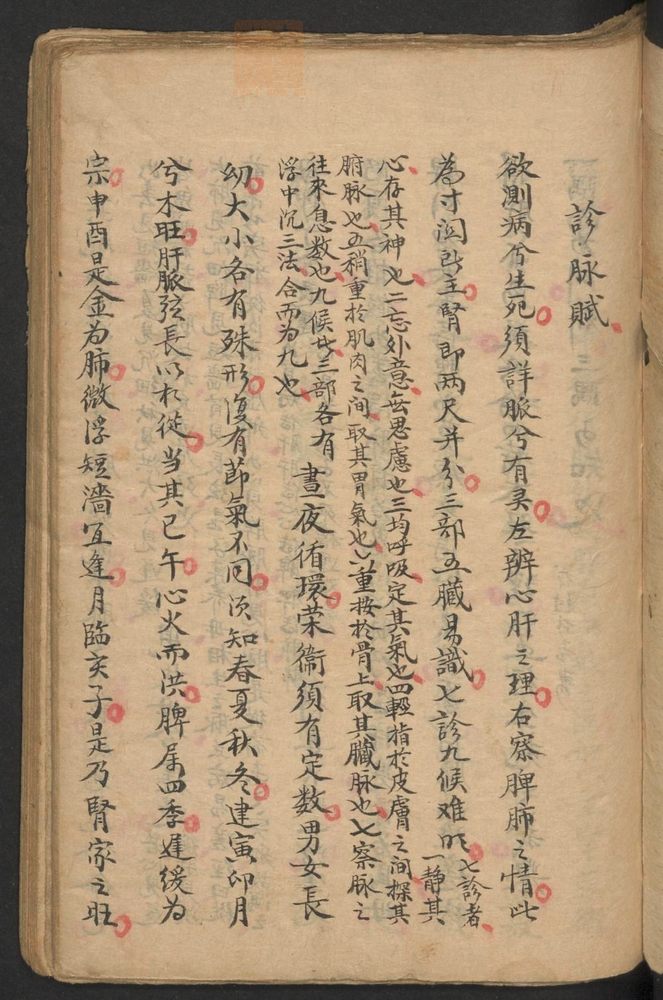 診脉賦
欲測病兮生死須詳脈兮有灵左辨心肝之理右察脾肺之情此
為寸関所主腎即两尺并分三部五臓易識七診九候难明
七診者
一静其
心存其神也二忘外意無思慮也三均呼吸定其氣也四輕指於皮膚之间探其
腑脉也五稍重於肌肉之间取其胃氣也六重按於骨上取其臓脉也七察脉之
往來息数也九候者三部各有
浮中沉三法合而为九也
晝夜循環荣衛須有定数男女長
幼大小各有殊形復有節氣不同须知春夏秋冬建寅卯月
兮木旺肝脈弦長以相從当其巳午心火而洪脾属四季遲缓为
宗申酉是金为肺微浮短濇宜逢月臨亥子是乃腎家之旺